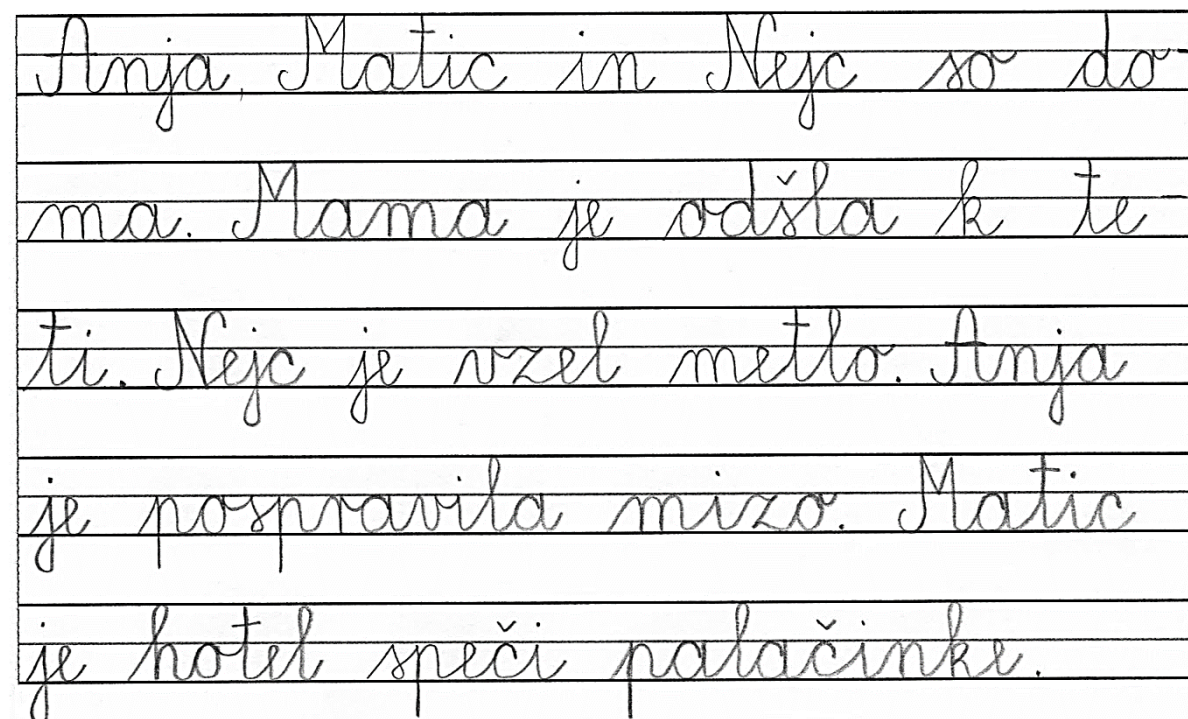 Anja, Matic in Nejc so do-
ma. Mama je odšla k te-
ti. Nejc je vzel metlo. Anja
je pospravila mizo. Matic
je hotel speči palačinke.